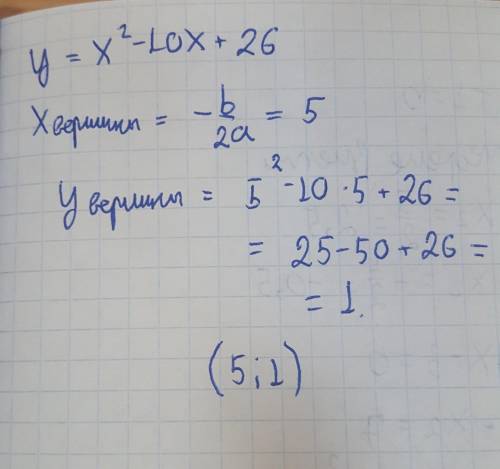 y = x² - 10x + 26
x вершины = - b/2a = 5
y вершины = 5² - 10 · 5 + 26 =
= 25 - 50 + 26 =
= 1.
(5; 1)